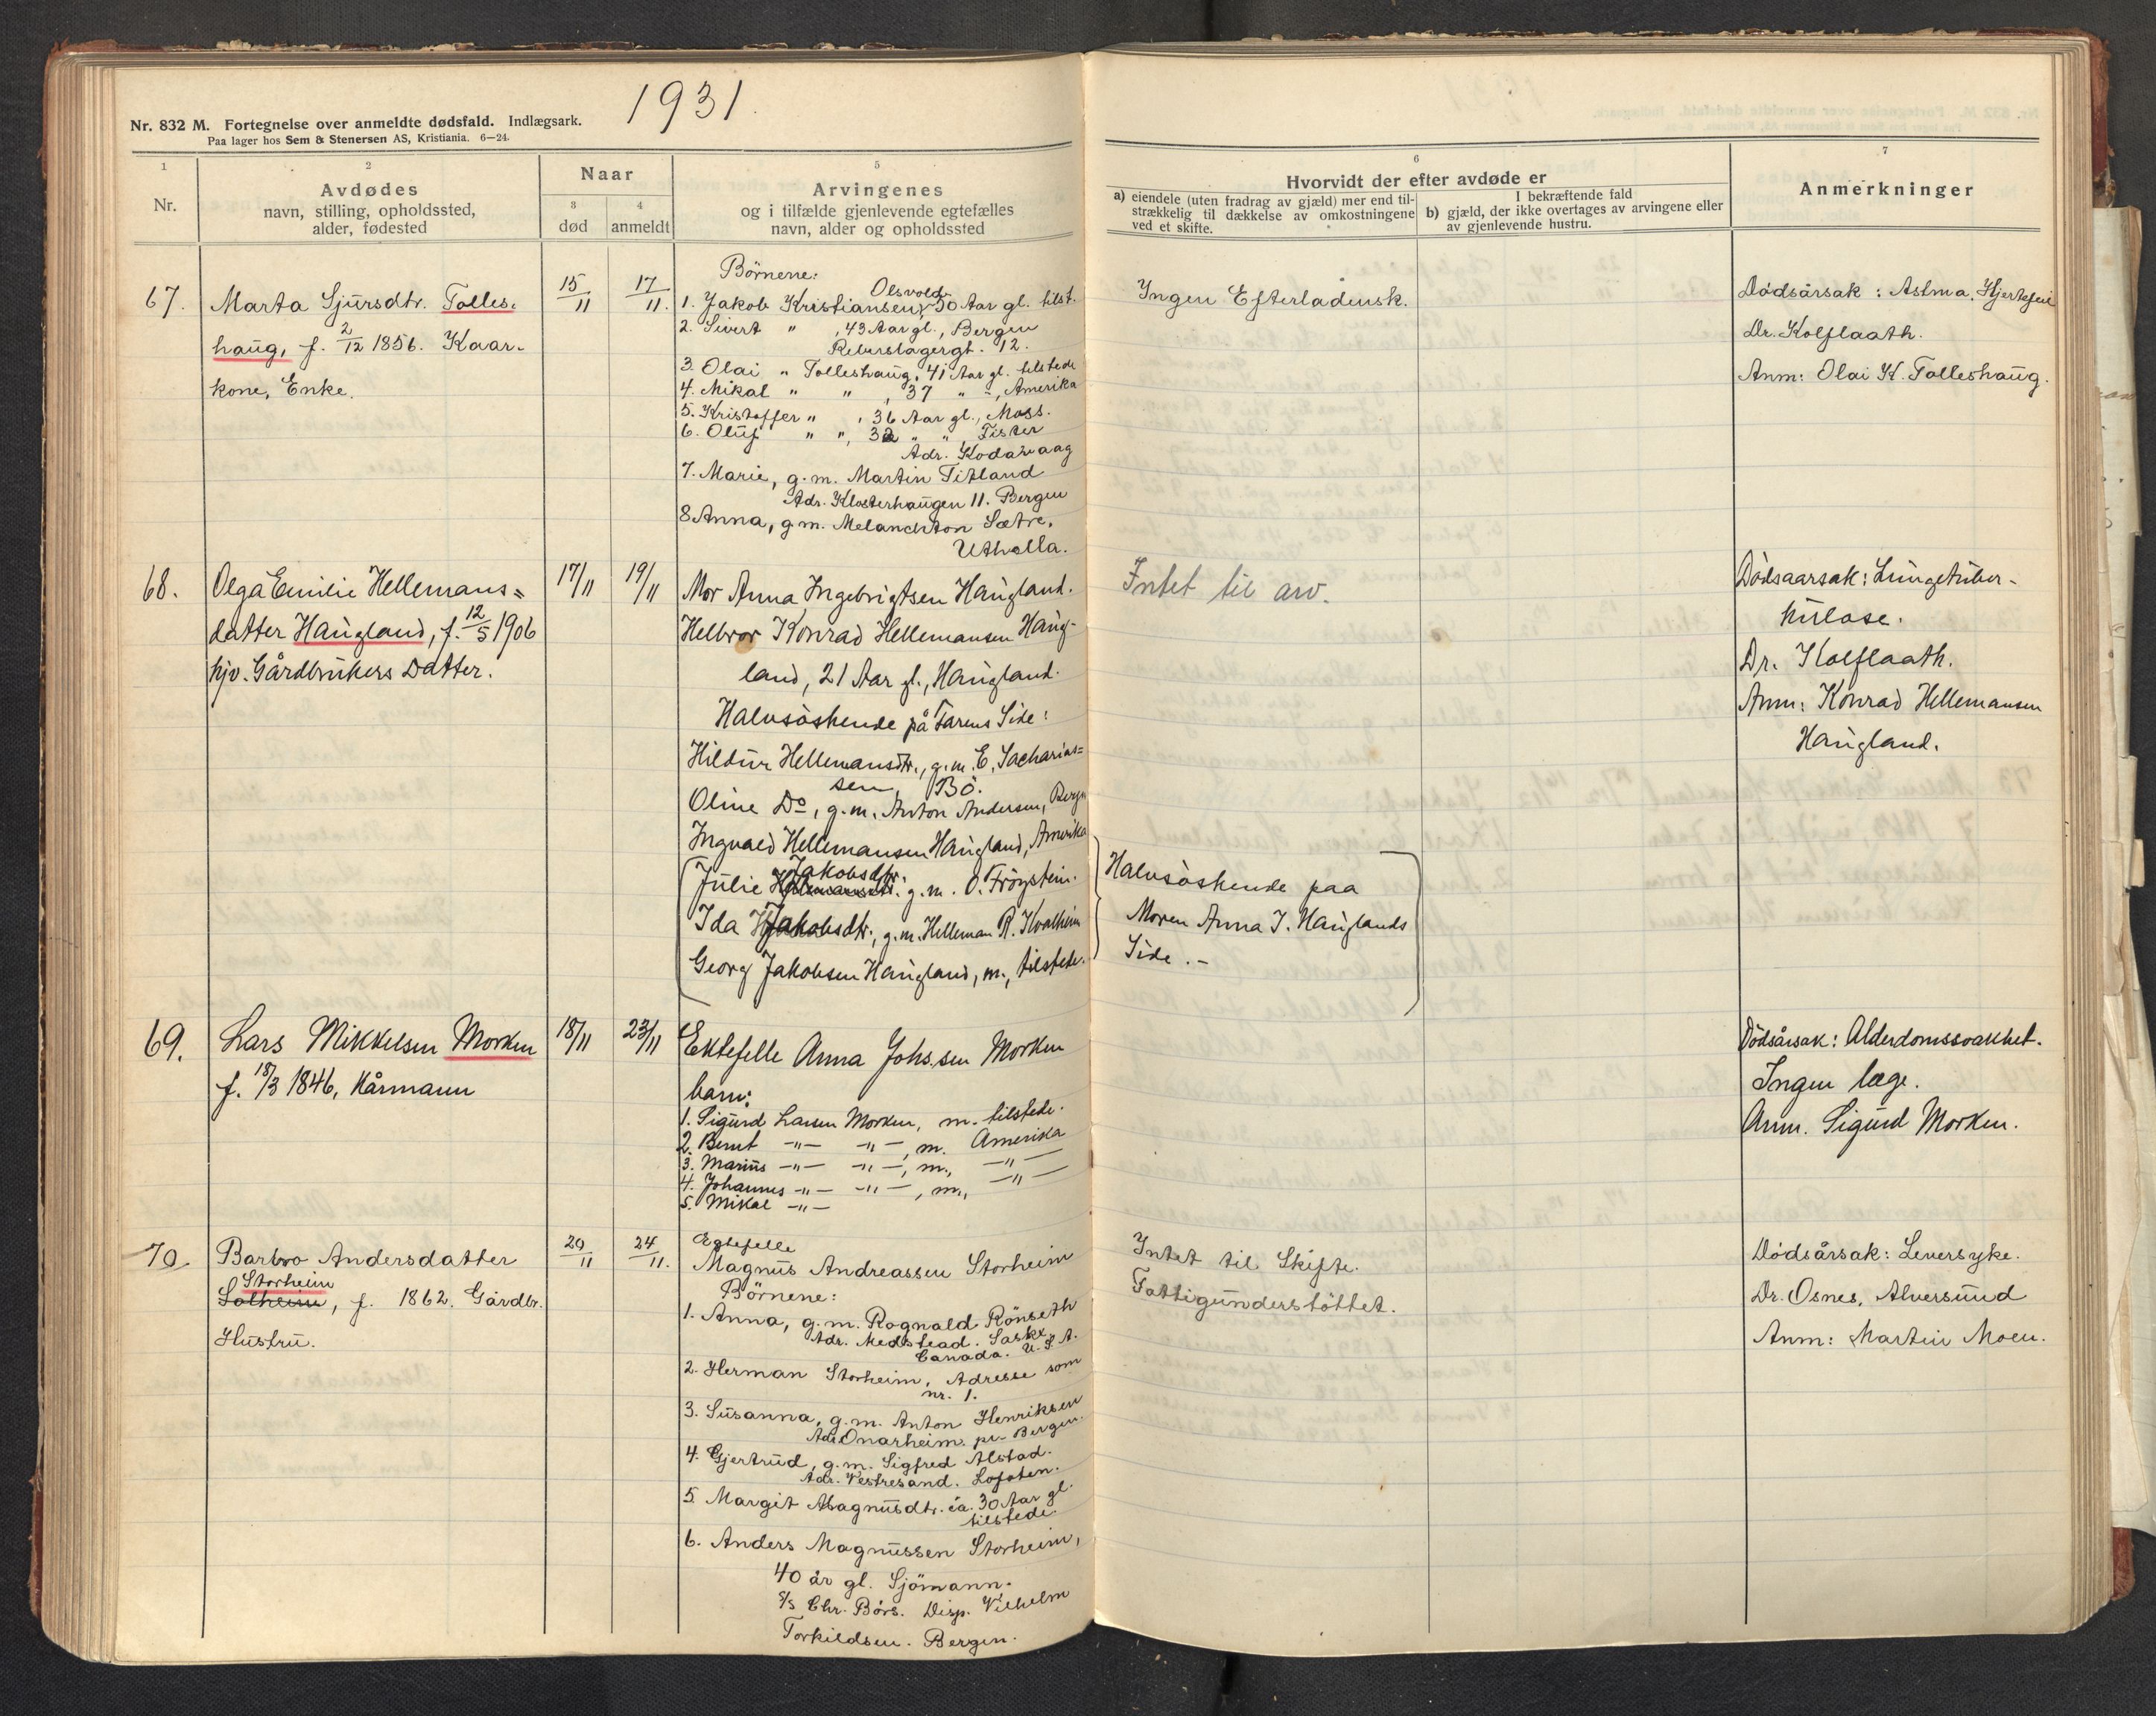 1931
Nr. 832 M. Fortegnelse over anmeldte dødsfald. Indlægsark.
Paa lager hos Sem & Stenersen AS, Kristiania. 6—24.
1
Nr.
2
Avdødes
navn, stilling, opholdssted,
alder, fødested
Naar
3
død
4
anmeldt
5
Arvingenes
og i tilfælde gjenlevende egtefælles
navn, alder og opholdssted
6
Hvorvidt der efter avdøde er
a) eiendele (uten fradrag av gjæld) mer end til-
strækkelig til dækkelse av omkostningene
ved et skifte.
I bekræftende fald
b) gjæld, der ikke overtages av arvingene eller
av gjenlevende hustru.
7
Anmerkninger
67.
Marta Sjursdtr. Tolles-
haug, f. 2/12 1856. Kaar-
kone, Enke.
15/11
17/11.
Börnene:
Olsvold
1. Jakob Kristiansen, 50 Aar gl. tilst.
2. Sivert " , 43 Aar gl., Bergen
12.
3. Olai " Tolleshaug, 41 Aar gl. tilstede
4. Mikal " " , 37 " ", Amerika
5. Kristoffer " , 36 Aar gl., Moss.
6. Oluf " ", 32 " ", Fisker
Adr.
7. Marie, g.m. Martin Titland
Adr. Klosterhaugen 11. Bergen
8 Anna, g.m. Melanchton Sætre,
Uthella.
Ingen Efterladensk.
Dödsårsak: Astma, Hjertefeil
Dr. Kolflaath.
Anm: Olai K. Tolleshaug.
68.
Olga Emilie Hellemans=
datter Haugland, f. 12/5 1906
hjv. Gårdbrukers Datter.
17/11
19/11
Mor Anna Ingebrigtsen Haugland.
Helbror Konrad Hellemansen Haug-
land, 21 Aar gl., Haugland.
Halvsöskende på Farens Side:
Hildur Hellemansdtr., g.m. E. Sacharias=
sen, Bö.
Oline Do, g.m. Anton Andersen, Bergn
Ingvald Hellemansen Haugland, Amerika
Jakobsdtr.
Julie Hellemansdtr. g.m. O. Fröystein.
Ida Jakobsdtr., g.m. Helleman R. Kvalheim
Georg Jakobsen Haugland, m., tilstede.
Intet til arv.
Halvsöskende paa
Moren Anna I. Hauglands
Side.-
Dödsaarsak: Lungetuber-
kulose.
Dr. Kolflaath.
Anm: Konrad Hellemansen
Haugland.
69.
Lars Mikkelsen Morken
f. 18/3 1846, Kårmann
18/11
23/11
Ektefelle Anna Johs.sen Morken
barn:
1. Sigurd Larsen Morken, m. tilstede.
2. Bernt -"- -"-, m. Amerika
3. Marius -"- -"-, m., -"-
4. Johannes -"- -"-, m., -"-
5. Mikal -"-
Dödsårsak: Alderdomssvakhet.
Ingen læge.
Anm. Sigurd Morken.
70.
Barbro Andersdatter
Storheim
Solheim, f. 1862. Gårdbr.
Hustru.
20/11
24/11.
Egtefelle
Magnus Andreassen Storheim
Börnene:
1. Anna, g.m. Ragnald Rönseth
Adr. Medstead. Sask.
Canada. U.S.A.
2. Herman Storheim, Adresse som
nr. 1.
3. Susanna, g.m. Anton Henriksen
Adr. Onarheim. pr. Bergen.
4. Gjertrud, g.m. Sigfred Alstad.
Adr. Vestresand. Lofoten.
5. Margit Magnusdtr. ca. 30 Aar gl.
tilstede.
6. Anders Magnussen Storheim,
40 år gl. Sjömann.
S/s Chr. Börs. Disp. Vilhelm
Torkildsen. Bergen.
Intet til Skifte.
Fattigunderstöttet.
Dödsårsak: Leversyke.
Dr. Osnes, Alversund
Anm: Martin Moen.